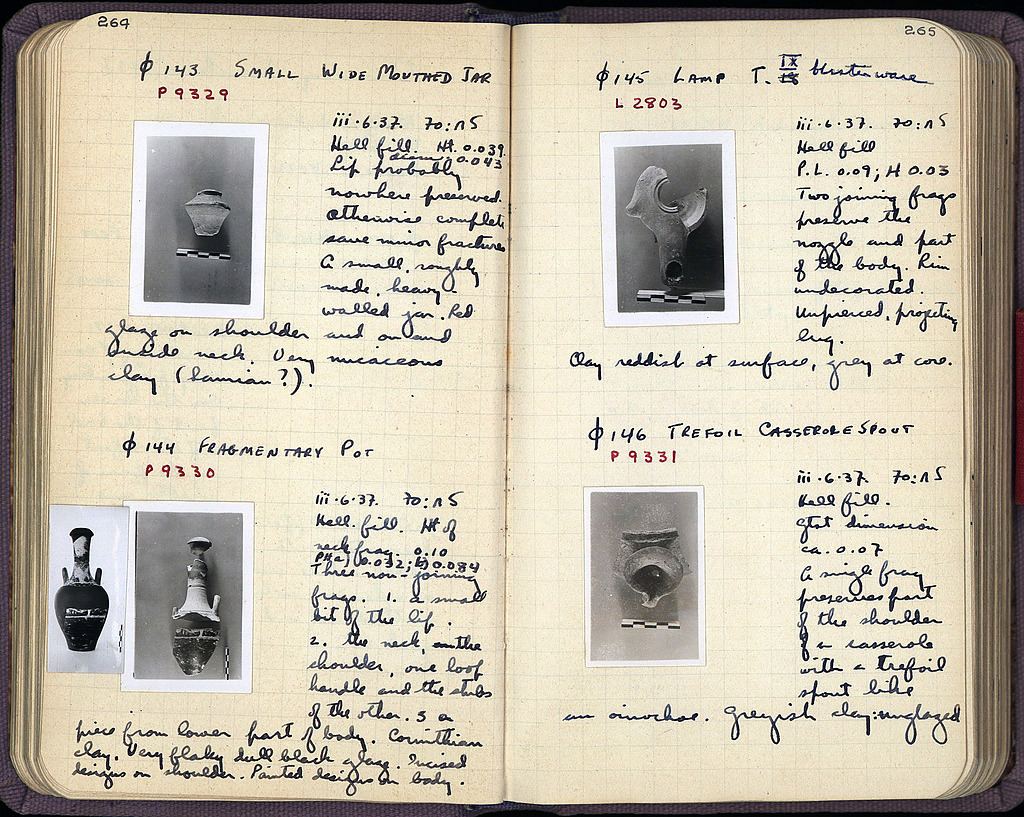 264
φ 143 SMALL WIDE MOUTHED JAR
P 9329
iii·6·37. 70:Λ5
Hell fill. Ht. 0.039.
diam. 0.043
Lip probably
nowhere preserved.
otherwise complete
save minor fractures
A small, roughly
made, heavy
walled jar. Red
glaze on shoulder and on and
inside neck. Very micaceous
clay (Samian?).
φ 144 FRAGMENTARY POT
P 9330
iii·6·37. 70:Λ5
Hell. fill. Ht of
neck frag. 0.10
PH a) 0.032; b) 0.084
Three non-joining
frags. 1. a small
bit of the lip.
2. the neck, the
shoulder, one loop
handle and the stubs
of the other. 3 a
piece from lower part of body. Corinthian
clay. Very flaky dull black glaze. Incised
designs on shoulder. Painted designs on body.
265
φ 145 LAMP T. IX blister ware
L 2803
iii·6·37. 70:Λ5
Hell fill
P.L. 0.09; H 0.03
Two joining frags
preserve the
nozzle and part
of the body. Rim
undecorated.
Unpierced, projecting
lug.
Clay reddish at surface, grey at core.
φ 146 TREFOIL CASSEROLE SPOUT
P 9331
iii·6·37. 70:Λ5
Hell fill.
Gtst dimension
ca. 0.07
A single frag
preserves part
of the shoulder
of a casserole
with a trefoil
spout like
an oinochoe. Greyish clay: unglazed